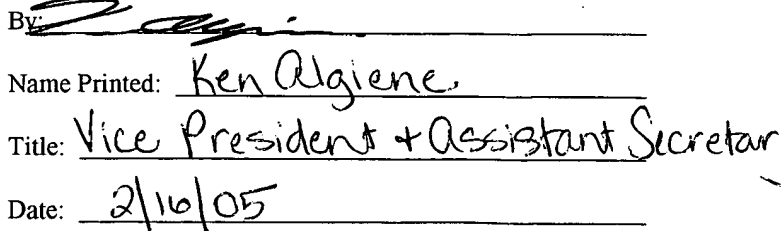 By:
Name Printed: Ken Algiene
Title: Vice President + Assistant Secretar
Date: 2/16/05